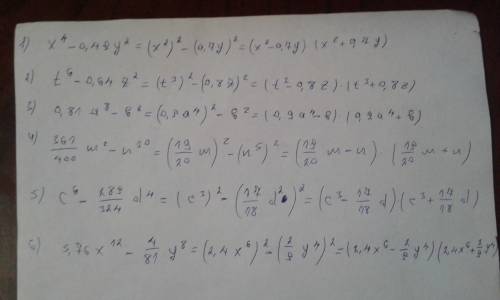 1) x⁴ - 0,49y² = (x²)² - (0,7y)² = (x² - 0,7y) · (x² + 0,7y)
2) t⁶ - 0,64z² = (t³)² - (0,8z)² = (t³ - 0,8z) · (t³ + 0,8z)
3) 0,81a⁸ - b² = (0,9a⁴)² - b² = (0,9a⁴ - b) · (0,9a⁴ + b)
4) 361/400 m² - n¹⁰ = (19/20 m)² - (n⁵)² = (19/20 m - n) · (19/20 m + n)
5) c⁶ - 289/324 d⁴ = (c³)² - (17/18 d²)² = (c³ - 17/18 d)(c³ + 17/18 d)
6) 5,76x¹² - 4/81 y⁸ = (2,4x⁶)² - (2/9 y⁴)² = (2,4x⁶ - 2/9 y⁴)(2,4x⁶ + 2/9 y⁴)